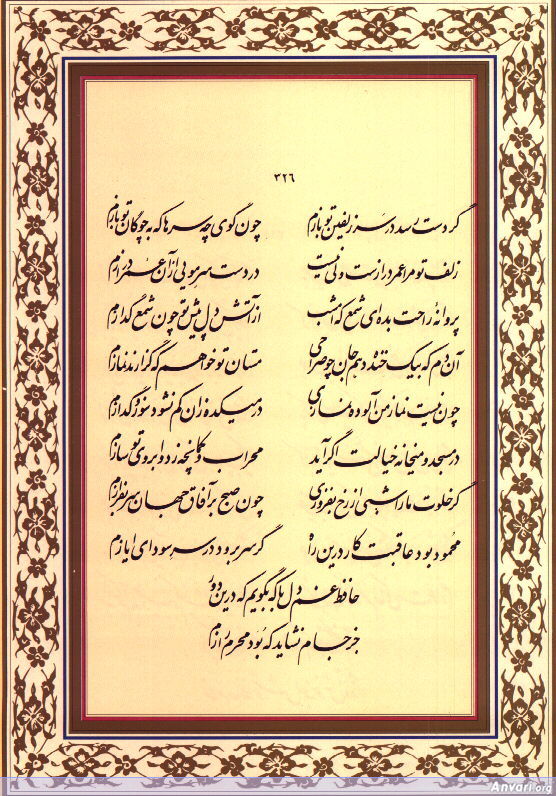 ۳۲۶
گر دست رسد در سر زلفین تو بازم چون گوی چه سرها که به چوگان تو بازم
زلف تو مرا عمر درازست ولی نیست در دست سر مویی از آن عمر درازم
پروانهٔ راحت بده ای شمع که امشب از آتش دل پیش تو چون شمع گدازم
آن دم که بیک خنده دهم جان چو صراحی مستان تو خواهم که گزارند نمازم
چون نیست نماز من آلوده نمازی در میکده زان کم نشود سوز و گدازم
در مسجد و میخانه خیالت اگر آید محراب و کمانچه ز دو ابروی تو سازم
گر خلوت ما را شبی از رخ بفروزی چون صبح بر آفاق جهان سر بفرازم
محمود بود عاقبت کار درین راه گر سر برود در سر سودای ایازم
حافظ غم دل با که بگویم که درین دور
جز جام نشاید که بود محرم رازم
Anvari.org